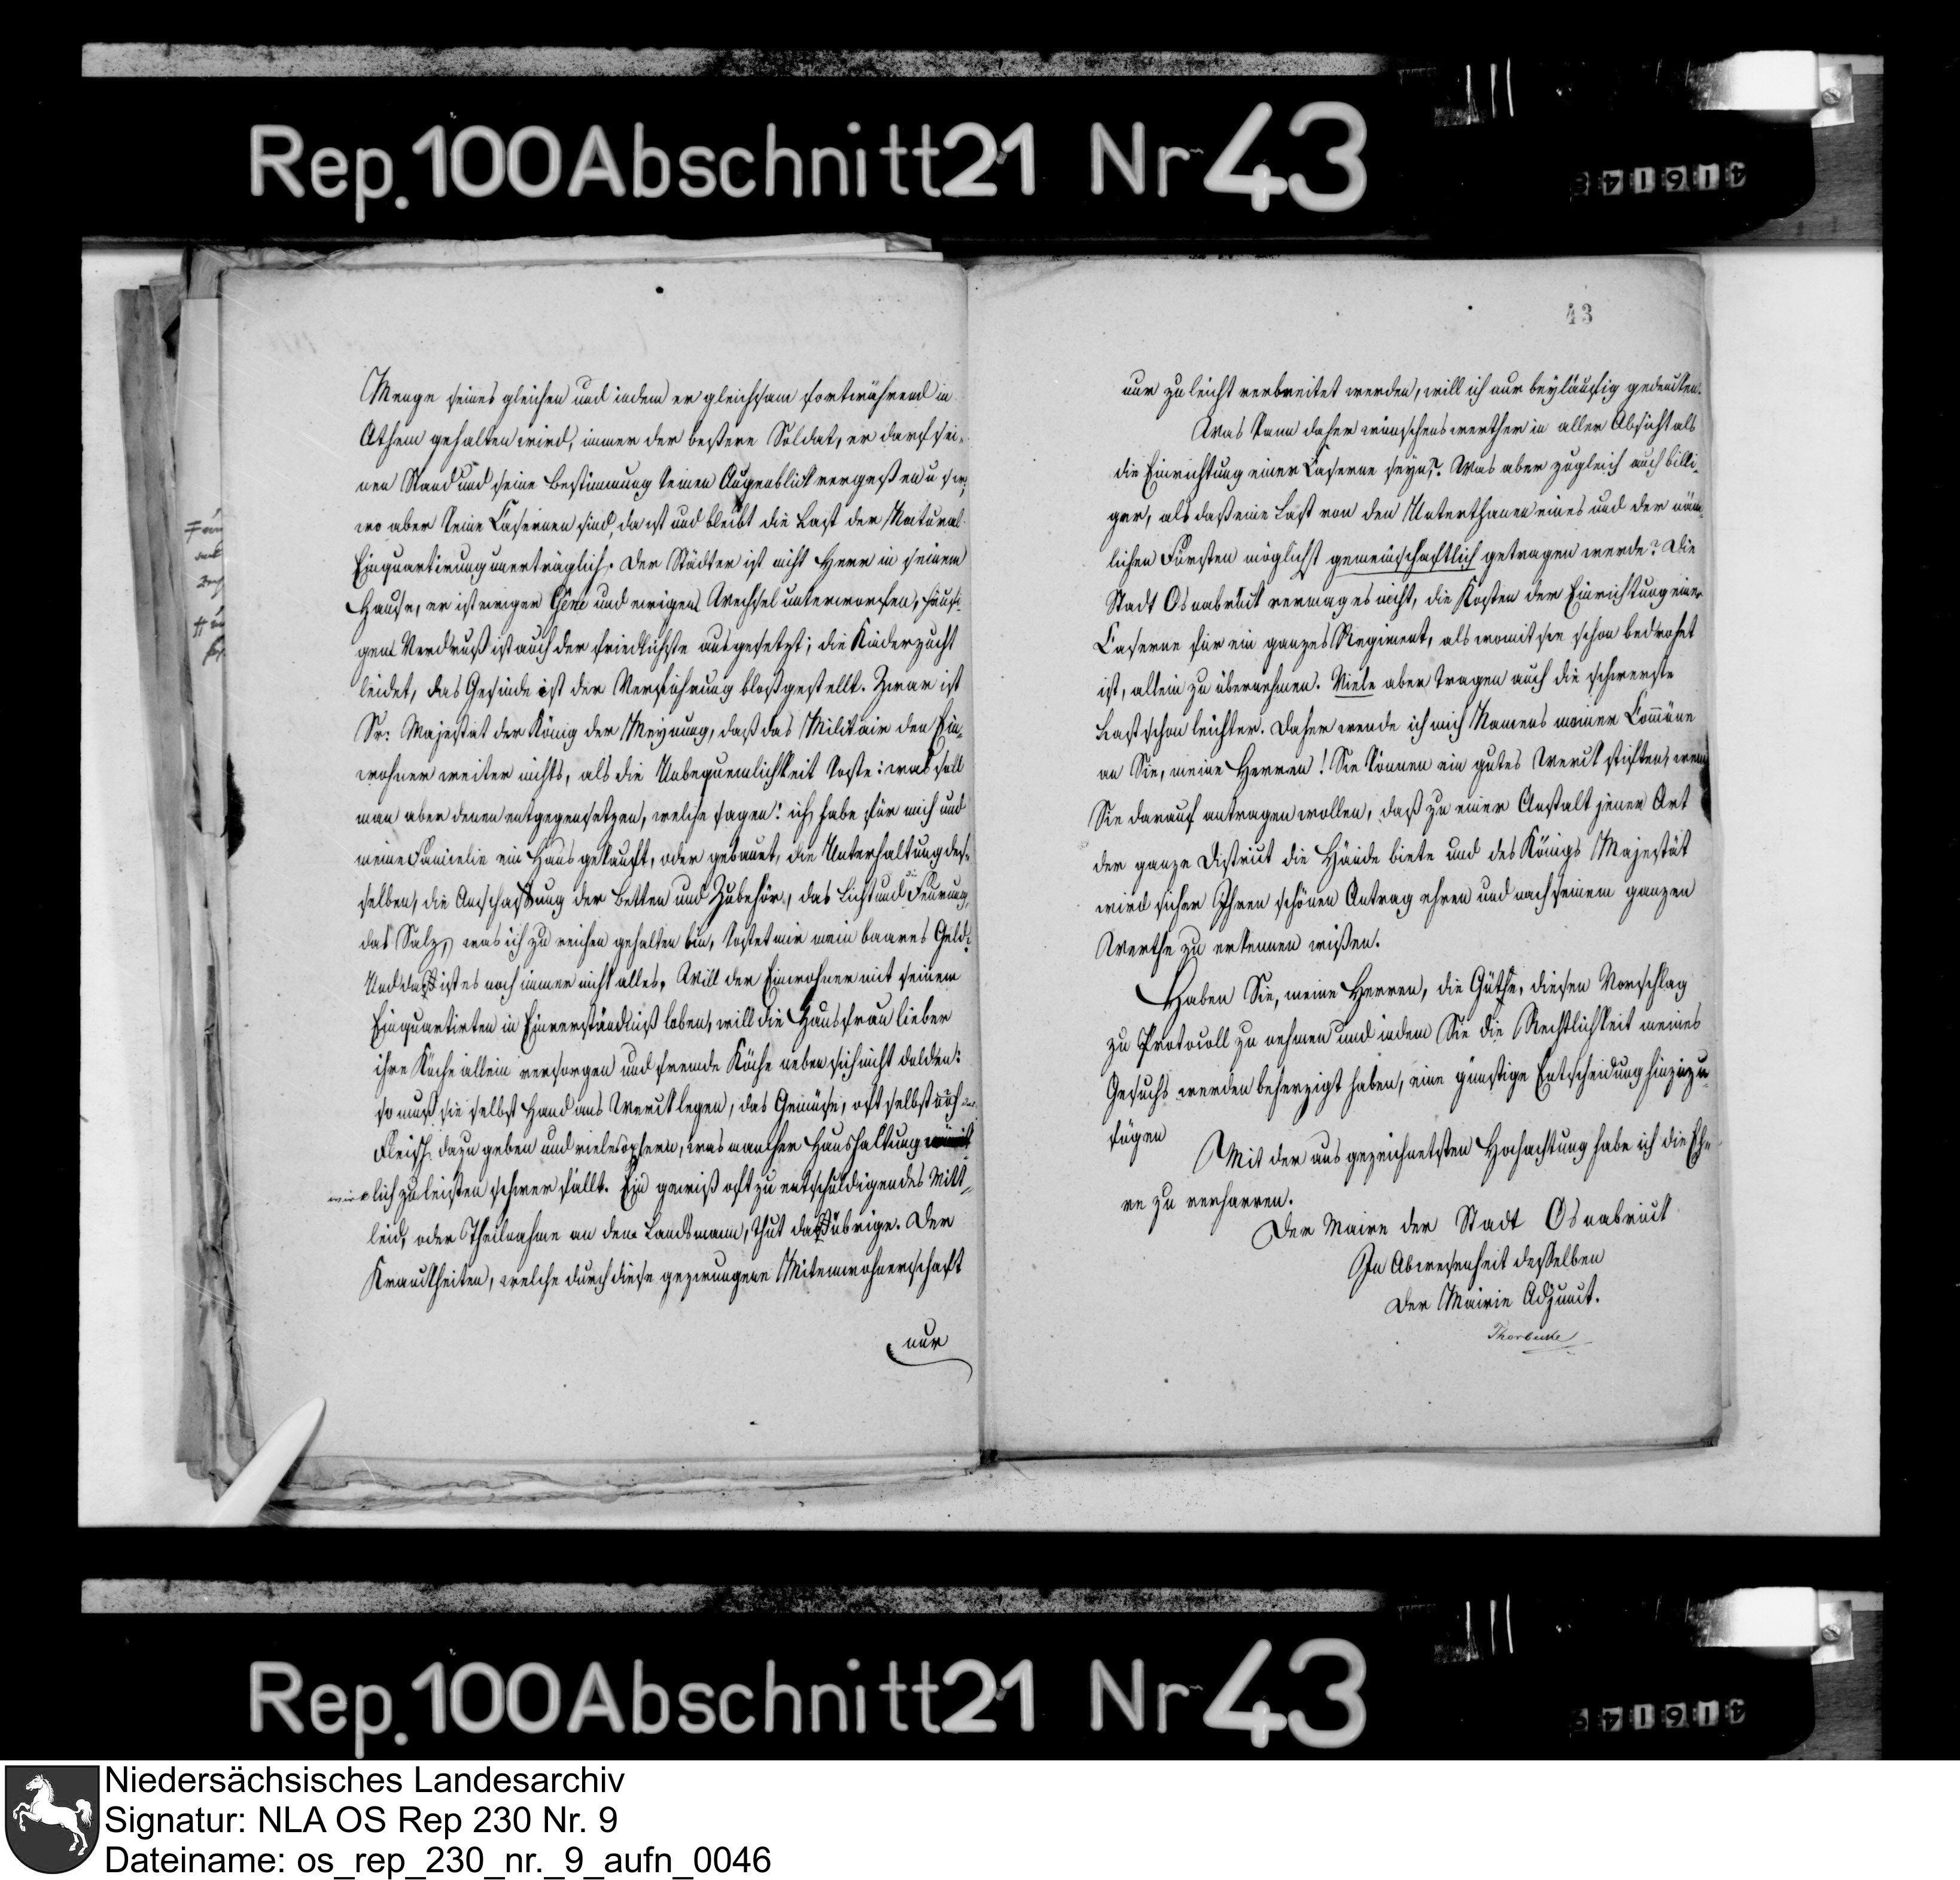 Rep. 100 Abschnitt 21 Nr 43
Menge seines gleichen und indem er gleichsam fortwährend in
Athem gehalten wird, immer der beßere Soldat, er darf sei-
nen Stand und seine Bestimmung keinen Augenblick vergeßen u
wo aber keine Casernen sind, da ist und bleibt die Last der Natural-
Einquartirung unerträglich. Der Städter ist nicht Herr in seinem
Hause, er ist ewiger Gêne und ewigem Wechsel unterworfen; häufi-
gem Verdruß ist auch der friedlichste ausgesetzt; die Kinderzucht
leidet, das Gesinde ist der Verführung bloßgestellt. Zwar ist
Sr: Majestät der König der Meynung, daß das Militair den Ein-
wohner weiter nichts, als die Unbequemlichkeit koste: was soll
man aber denen entgegensetzen, welche sagen: ich habe für mich und
meine Familie ein Haus gekauft, oder gebauet, die Unterhaltung des-
selben, die Anschaffung der Betten und Zubehör, das Licht und die Feurung,
das Salz, was ich zu reichen gehalten bin, kostet mir mein baares Geld.
Und das ist es noch immer nicht alles. Will der Einwohner mit seinem
Einquartirten in Einverständniß leben, will die Hausfrau lieber
ihre Küche allein versorgen und fremde Köche neben sich nicht dulden:
so muß sie selbst Hand ans Werck legen, das Gemüse, oft selbst auch das
Fleisch dazu geben und vieles opfern, was mancher Haushaltung
wirklich zu leisten schwer fällt. Ein gewiß oft zu entschuldigendes Mit-
leid, oder Theilnahme an dem Landsmann, thut das übrige. Der
Kranckheiten, welche durch diese gezwungene Miteinwohnerschaft
nur
43
nur zu leicht verbreitet werden, will ich nur beyläufig gedencken.
Was kann daher wünschenswerther in aller Absicht als
die Einrichtung einer Caserne seyn? Was aber zugleich auch billi-
ger, als daß eine Last von den Unterthanen eines und der näm-
lichen Fürsten möglichst gemeinschaftlich getragen werde? Die
Stadt Osnabrück vermag es nicht, die Kosten der Einrichtung einer
Caserne für ein ganzes Regiment, als womit sie schon bedrohet
ist, allein zu übernehmen. Viele aber tragen auch die schwerste
Last schon leichter. Daher wende ich mich Namens meiner Commüne
an Sie, meine Herren! Sie können ein gutes Werck stiften, wenn
Sie darauf antragen wollen, daß zu einer Anstalt jener Art
der ganze District die Hände biete und des Königs Majestät
wird sicher Ihren schönen Antrag ehren und nach seinem ganzen
Werthe zu erkennen wißen.
Haben Sie, meine Herren, die Güthe, diesen Vorschlag
zu Protocoll zu nehmen und indem Sie die Rechtlichkeit meines
Gesuchs werden beherzigt haben, eine günstige Entscheidung hinzuzu-
fügen
Mit der ausgezeichnetsten Hochachtung habe ich die Eh-
re zu verharren.
Der Maire der Stadt Osnabrück
In Abwesenheit desselben
Der Mairie Adjunct.
Thorbecke
Rep. 100 Abschnitt 21 Nr 43
Niedersächsisches Landesarchiv
Signatur: NLA OS Rep 230 Nr. 9
Dateiname: os_rep_230_nr._9_aufn_0046